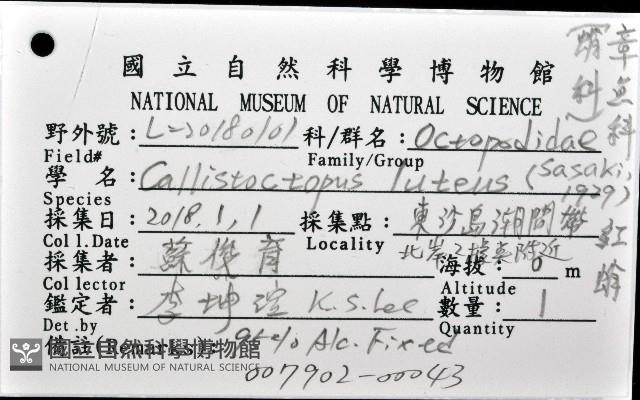 國立自然科學博物館
NATIONAL MUSEUM OF NATURAL SCIENCE
野外號: L-20180101 科/群名: Octopodidae
Field# Family/Group
學 名: Callistoctopus luteus (Sasaki, 1929)
Species
採集日: 2018.1.1 採集點: 東沙島潮間帶
Col l.Date Locality 北岸2號哨附近
採集者: 蘇俊育 海拔: 0 m
Col lector Altitude
鑑定者: 李坤瑄 K.S.Lee 數量: 1
Det .by Quantity
備註(Remarks): 95% Alc. Fixed
007902-00043
章魚科
紅蛸
國立自然科學博物館
NATIONAL MUSEUM OF NATURAL SCIENCE